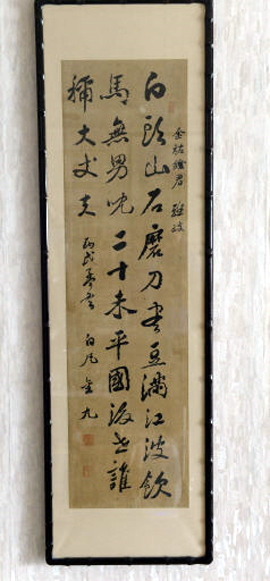 金祐銓君 雅
白頭山石磨刀盡豆滿江波飲
馬無男兒二十未平國後世誰
稱大丈夫
丙戌 白凡 金九